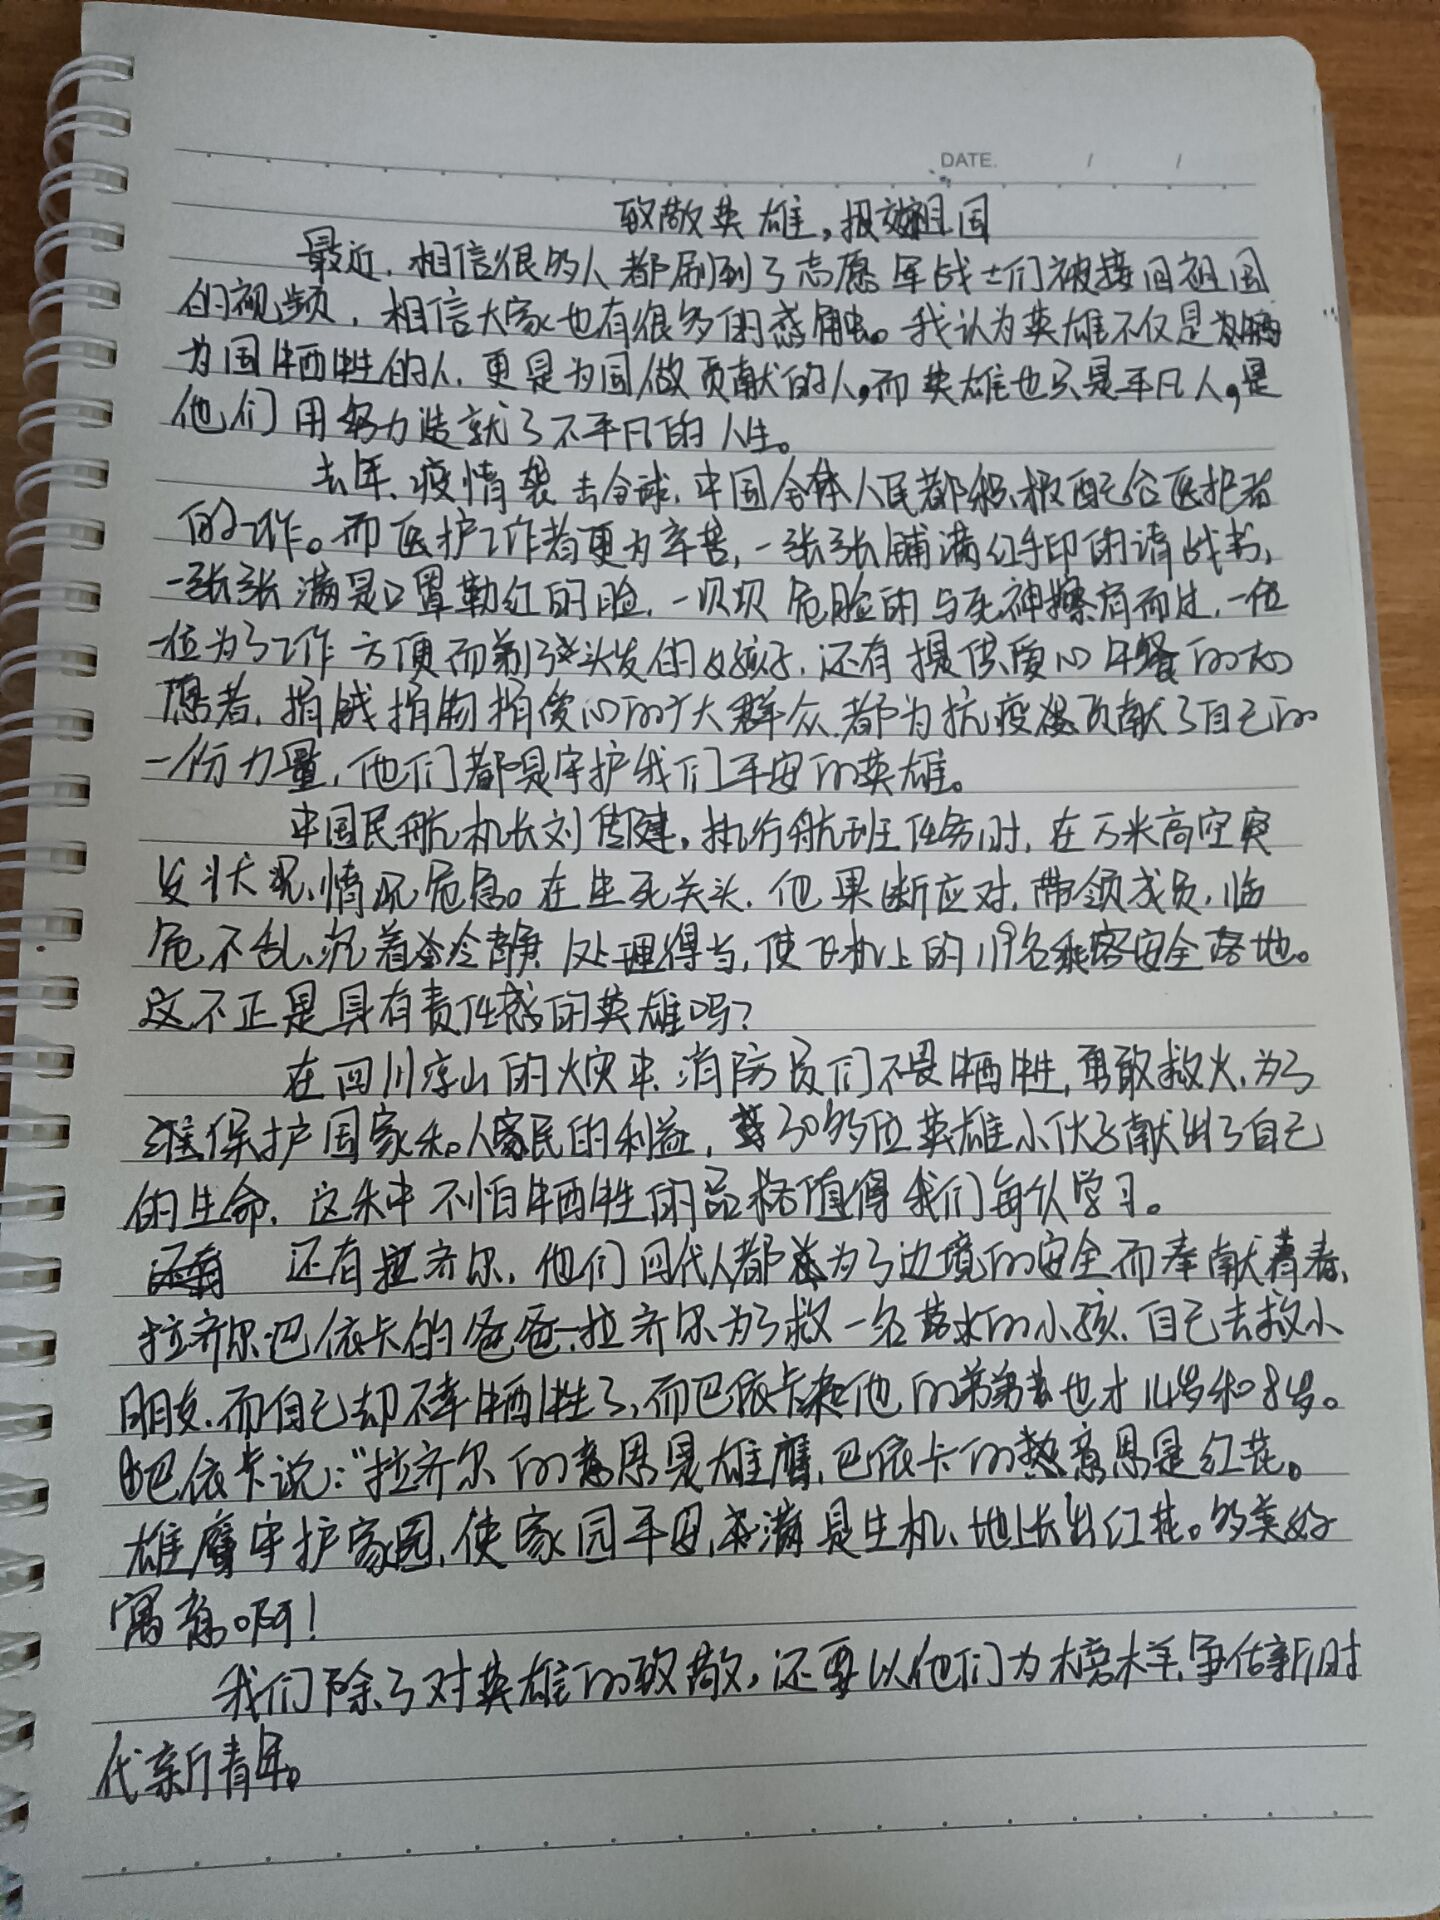 DATE. / /
致敬英雄，报效祖国
最近，相信很多人都刷到了志愿军战士们被接回祖国
的视频，相信大家也有很多的感触。我认为英雄不仅是
为国牺牲的人，更是为国做贡献的人，而英雄也只是平凡人，是
他们用努力造就了不平凡的人生。
去年，疫情袭击全球，中国全体人民都积极配合医护者
的工作。而医护工作者更为辛苦，一张张铺满红手印的请战书，
一张张满是口罩勒红的脸，一次次危险的与死神擦肩而过，一位
位为了工作方便而剃头发的女孩子，还有提供爱心午餐的志
愿者，捐钱捐物捐爱心的广大群众，都为抗疫贡献了自己的
一份力量，他们都是守护我们平安的英雄。
中国民航机长刘传健，执行航班任务时，在万米高空突
发状况，情况危急。在生死关头，他果断应对，带领成员，临
危不乱，沉着冷静，处理得当，使飞机上的119名乘客安全落地。
这不正是具有责任感的英雄吗？
在四川凉山的火灾中，消防员们不畏牺牲，勇敢救火，为了
保护国家和人民的利益，30多位英雄小伙子献出了自己
的生命，这种不怕牺牲的品格值得我们每人学习。
还有拉齐尔，他们四代人都为了边境的安全而奉献青春，
拉齐尔·巴依卡的爸爸，拉齐尔为了救一名落水的小孩，自己去救小
朋友，而自己却不幸牺牲了，而巴依卡和他的弟弟也才14岁和8岁。
巴依卡说：“拉齐尔的意思是雄鹰，巴依卡的意思是红花。
雄鹰守护家园，使家园平安，满是生机，地上长出红花。多美好
寓意啊！
我们除了对英雄的致敬，还要以他们为榜样，争做新时
代新青年。